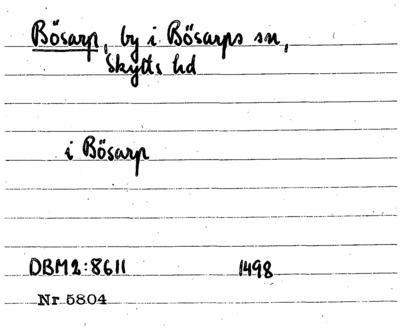 Bösarp, by i Bösarps sn,
Skytts hd
i Bösarp
DBM2:8611 1498
Nr 5804